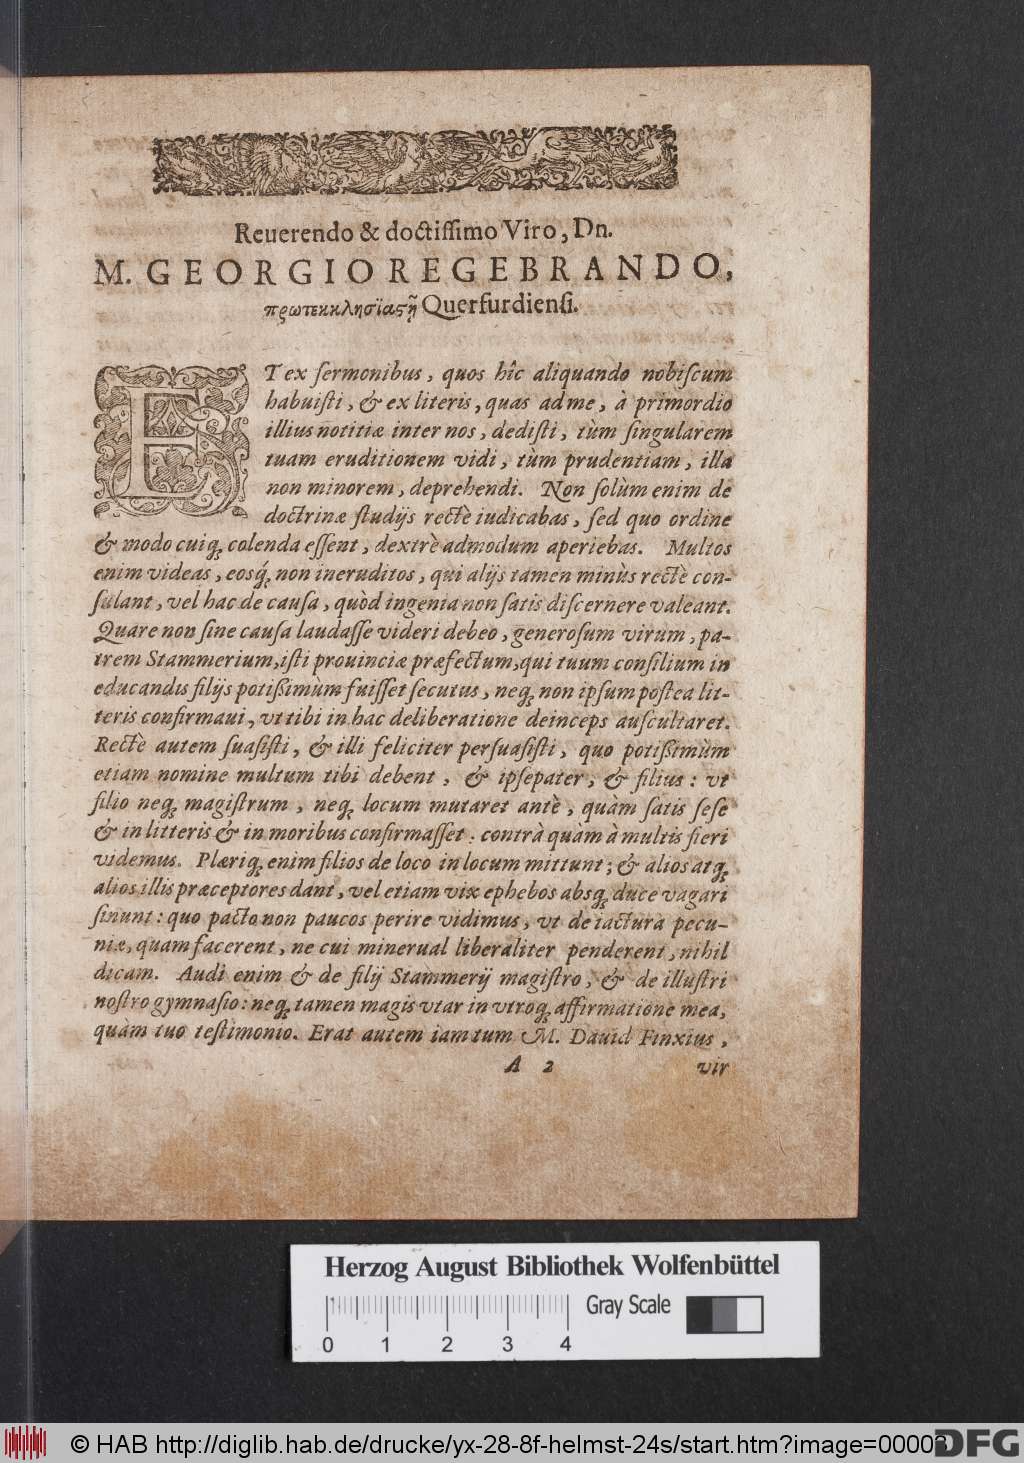 Reuerendo & doctiſſimo Viro, Dn.
M. GEORGIO REGEBRANDO,
πρωτεκκλησϊαςῇ Querfurdienſi.
ET ex ſermonibus, quos hîc aliquando nobiſcum
habuiſti, & ex literis, quas ad me, à primordio
illius notitiæ inter nos, dediſti, tùm ſingularem
tuam eruditionem vidi, tùm prudentiam, illa
non minorem, deprehendi. Non ſolùm enim de
doctrinæ ſtudijs rectè iudicabas, ſed quo ordine
& modo cuiq́; colenda eſſent, dextrè admodum aperiebas. Multos
enim videas, eosq́; non ineruditos, qui alijs tamen minùs rectè con-
ſulant, vel hac de cauſa, quòd ingenia non ſatis diſcernere valeant.
Quare non ſine cauſa laudaſſe videri debeo, generoſum virum, pa-
trem Stammerium, iſti prouinciæ præfectum, qui tuum conſilium in
educandis filijs potißimùm fuiſſet ſecutus, neq; non ipſum poſtea lit-
teris confirmaui, vt tibi in hac deliberatione deinceps auſcultaret.
Rectè autem ſuaſiſti, & illi feliciter perſuaſiſti, quo potißimùm
etiam nomine multum tibi debent, & ipſe pater, & filius: vt
filio neq; magiſtrum, neq; locum mutaret antè, quàm ſatis ſeſe
& in litteris & in moribus confirmaſſet: contrà quàm à multis fieri
videmus. Plæriq; enim filios de loco in locum mittunt; & alios atq;
alios illis præceptores dant, vel etiam vix ephebos absq; duce vagari
ſinunt: quo pacto non paucos perire vidimus, vt de iactura pecu-
niæ, quam facerent, ne cui minerual liberaliter penderent, nihil
dicam. Audi enim & de filij Stammerij magiſtro, & de illuſtri
noſtro gymnaſio: neq; tamen magis vtar in vtroq; affirmatione mea,
quàm tuo teſtimonio. Erat autem iam tum M. Dauid Finxius,
A 2 vir
Herzog August Bibliothek Wolfenbüttel
Gray Scale
0 1 2 3 4
© HAB http://diglib.hab.de/drucke/yx-28-8f-helmst-24s/start.htm?image=00003
DFG